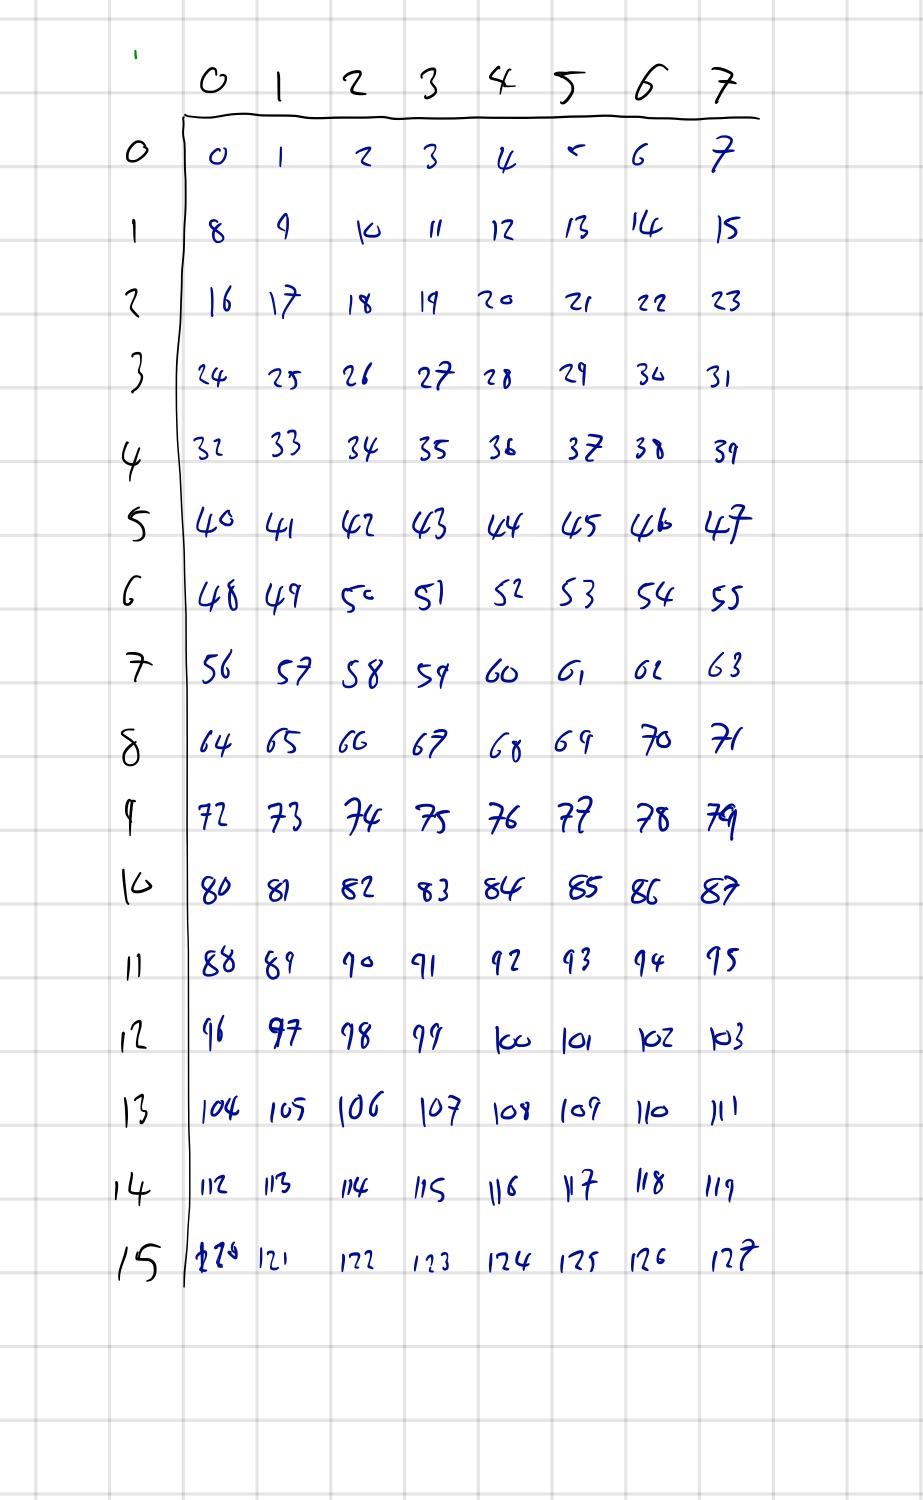 0 1 2 3 4 5 6 7
0 0 1 2 3 4 5 6 7
1 8 9 10 11 12 13 14 15
2 16 17 18 19 20 21 22 23
3 24 25 26 27 28 29 30 31
4 32 33 34 35 36 37 38 39
5 40 41 42 43 44 45 46 47
6 48 49 50 51 52 53 54 55
7 56 57 58 59 60 61 62 63
8 64 65 66 67 68 69 70 71
9 72 73 74 75 76 77 78 79
10 80 81 82 83 84 85 86 87
11 88 89 90 91 92 93 94 95
12 96 97 98 99 100 101 102 103
13 104 105 106 107 108 109 110 111
14 112 113 114 115 116 117 118 119
15 120 121 122 123 124 125 126 127